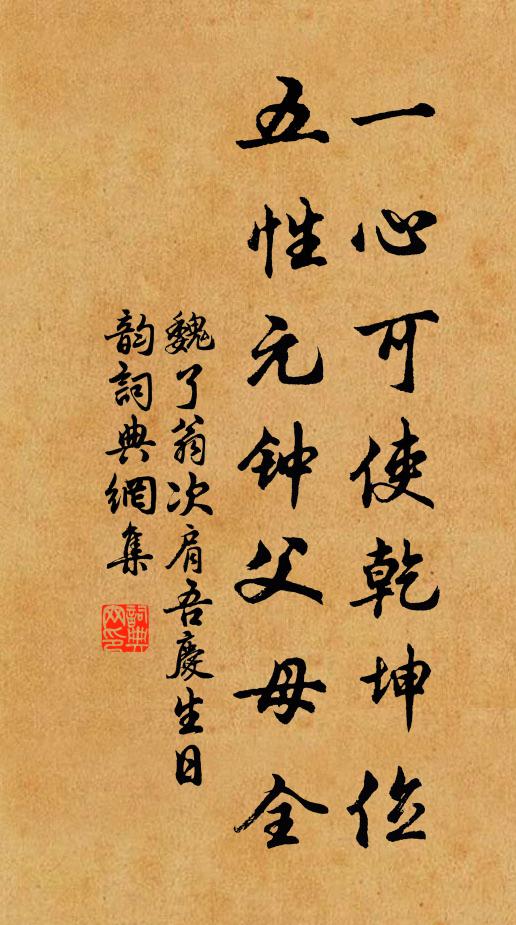 一心可使乾坤位
五性元钟父母全
魏了翁次肩吾慶生日
韵詞典網集
詞典网印